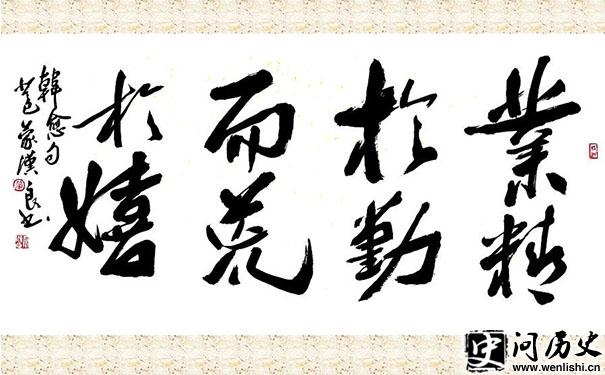 業精
於勤
而荒
於嬉
韓愈句
漢良书
史 问历史
www.wenlishi.cn